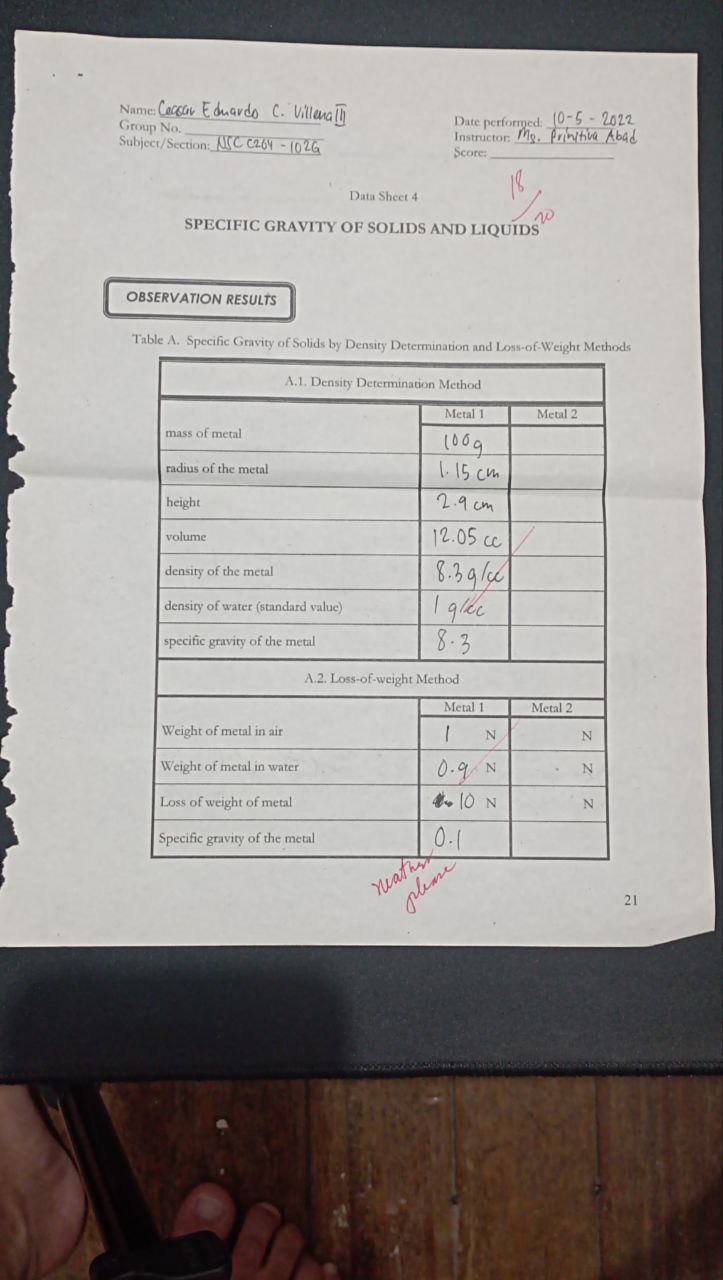 Name: Caesar Eduardo C. Villena III
Date performed: 10-5-2022
Group No.
Instructor: Ms. Primitiva Abad
Subject/Section: NSC C264-102G
Score:
18/20
Data Sheet 4
SPECIFIC GRAVITY OF SOLIDS AND LIQUIDS
OBSERVATION RESULTS
Table A. Specific Gravity of Solids by Density Determination and Loss-of-Weight Methods
A.1. Density Determination Method
Metal 1 Metal 2
mass of metal 100g
radius of the metal 1.15 cm
height 2.9 cm
volume 12.05 cc
density of the metal 8.3 g/cc
density of water (standard value) 1 g/cc
specific gravity of the metal 8.3
A.2. Loss-of-weight Method
Metal 1 Metal 2
Weight of metal in air 1 N N
Weight of metal in water 0.9 N N
Loss of weight of metal 10 N N
Specific gravity of the metal 0.1
please
21